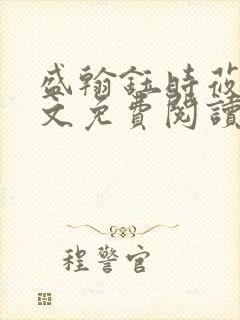 盛翰鈺時莜
文免費閱讀
程警官